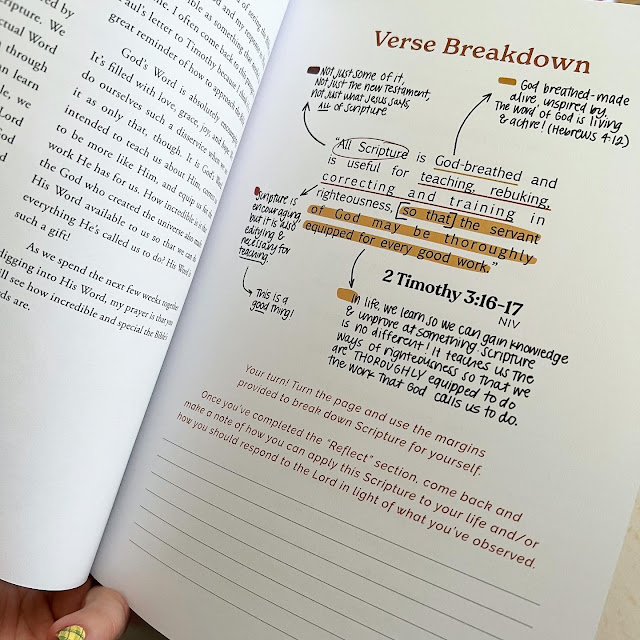 ripture. We
ctual Word
through
n learn
le, we
Lord
God
d
me. I often come back to
aul's letter to Timothy because
great reminder of how to approach
God's Word is absolutely
It's filled with love, grace, joy and
do ourselves such a disservice when
it as only that, though. It is God.
intended to teach us about Him,
to be more like Him, and equip us for
work He has for us. How incredible is
the God who created the universe also made
His Word available to us so that we can do
everything He's called us to do! His Word's
such a gift!
As we spend the next few weeks together
digging into His Word, my prayer is that you
ll see how incredible and special the Bible
ds are.
Verse Breakdown
Not just some of it,
Not just the new testament,
not just what Jesus says
All of scripture
God breathed-made
alive, inspired by.
The word of God is living
& active! (Hebrews 4:12)
"All Scripture is God-breathed and
is useful for teaching, rebuking,
correcting and training in
righteousness, [so that] the servant
of God may be thoroughly
equipped for every good work."
2 Timothy 3:16-17
NIV
Scripture is
encouraging
but it is also
edifying &
necessary for
teaching.
This is a
good thing!
In life, we learn so we can gain knowledge
& improve at something. Scripture
is no different! It teaches us the
ways of righteousness so that we
are THOROUGHLY equipped to do
the work that God calls us to do.
Your turn! Turn the page and use the margins
provided to break down Scripture for yourself.
Once you've completed the "Reflect" section, come back and
make a note of how you can apply this Scripture to your life and/or
how you should respond to the Lord in light of what you've observed.